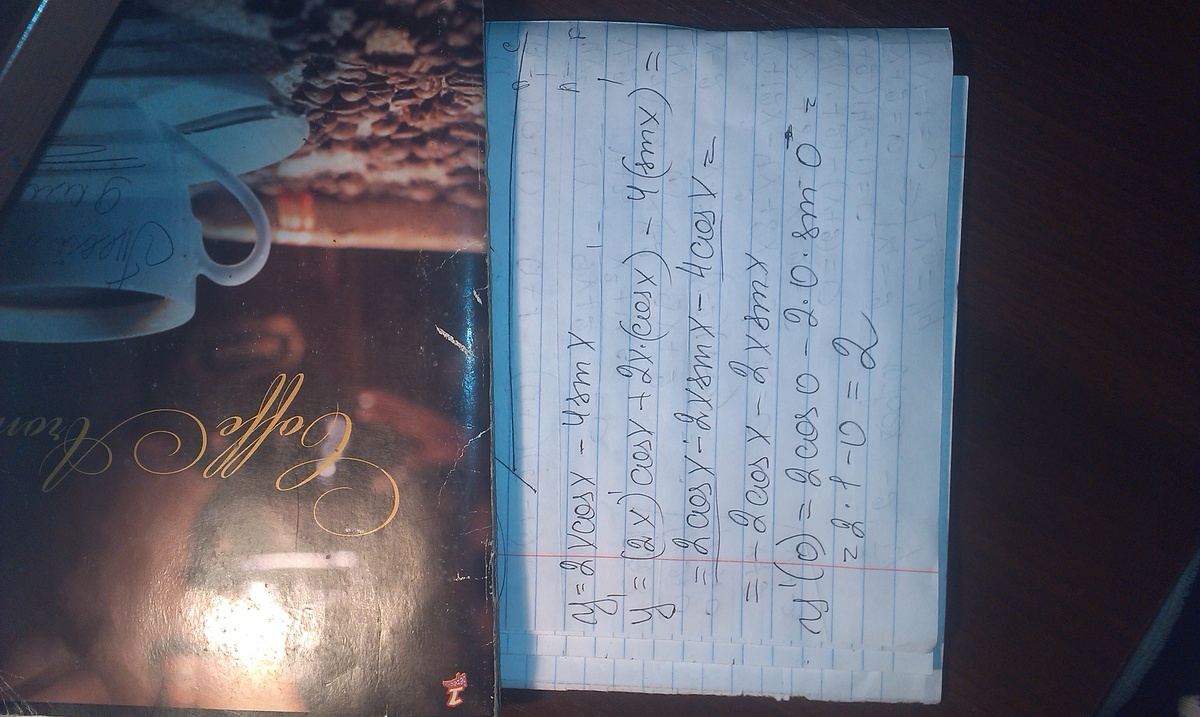 y = 2xcosx - 4sinx
y' = (2x)'cosx + 2x·(cosx)' - 4(sinx)' =
= 2cosx - 2xsinx - 4cosx =
= - 2cosx - 2xsinx
y'(0) = 2cos0 - 2·0·sin0 =
= 2·1 - 0 = 2
Coffe